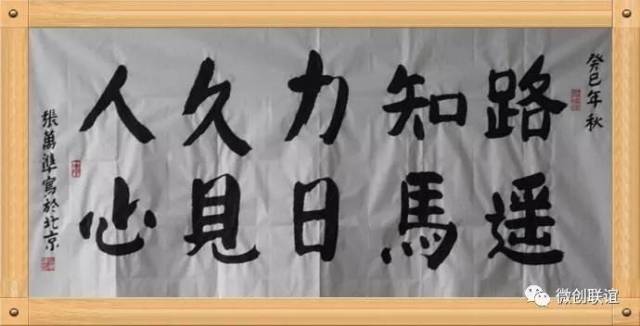 癸巳年秋
路遥
知馬
力日
久見
人心
張萬準寫於北京
微创联谊